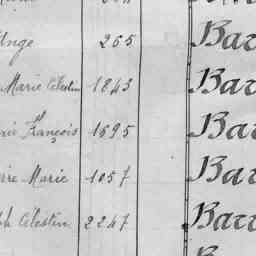 Ange 265 Bar
Marie Célestin 1843 Bar
François 1595 Bar
Marie 1057 Bar
Célestin 2247 Bar